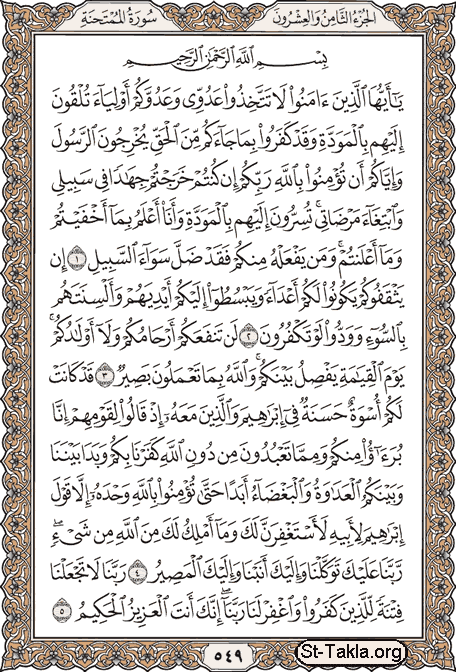 الجزء الثامن والعشرون سورة الممتحنة
بِسْمِ اللَّهِ الرَّحْمَٰنِ الرَّحِيمِ
يَٰٓأَيُّهَا الَّذِينَ ءَامَنُوا۟ لَا تَتَّخِذُوا۟ عَدُوِّى وَعَدُوَّكُمْ أَوْلِيَآءَ تُلْقُونَ
إِلَيْهِم بِالْمَوَدَّةِ وَقَدْ كَفَرُوا۟ بِمَا جَآءَكُم مِّنَ الْحَقِّ يُخْرِجُونَ الرَّسُولَ
وَإِيَّاكُمْ أَن تُؤْمِنُوا۟ بِاللَّهِ رَبِّكُمْ إِن كُنتُمْ خَرَجْتُمْ جِهَٰدًا فِى سَبِيلِى
وَابْتِغَآءَ مَرْضَاتِى تُسِرُّونَ إِلَيْهِم بِالْمَوَدَّةِ وَأَنَا۠ أَعْلَمُ بِمَآ أَخْفَيْتُمْ
وَمَآ أَعْلَنتُمْ وَمَن يَفْعَلْهُ مِنكُمْ فَقَدْ ضَلَّ سَوَآءَ السَّبِيلِ ١ إِن
يَثْقَفُوكُمْ يَكُونُوا۟ لَكُمْ أَعْدَآءً وَيَبْسُطُوٓا۟ إِلَيْكُمْ أَيْدِيَهُمْ وَأَلْسِنَتَهُم
بِالسُّوٓءِ وَوَدُّوا۟ لَوْ تَكْفُرُونَ ٢ لَن تَنفَعَكُمْ أَرْحَامُكُمْ وَلَآ أَوْلَٰدُكُمْ
يَوْمَ الْقِيَٰمَةِ يَفْصِلُ بَيْنَكُمْ وَاللَّهُ بِمَا تَعْمَلُونَ بَصِيرٌ ٣ قَدْ كَانَتْ
لَكُمْ أُسْوَةٌ حَسَنَةٌ فِىٓ إِبْرَٰهِيمَ وَالَّذِينَ مَعَهُۥٓ إِذْ قَالُوا۟ لِقَوْمِهِمْ إِنَّا
بُرَءَٰٓؤُا۟ مِنكُمْ وَمِمَّا تَعْبُدُونَ مِن دُونِ اللَّهِ كَفَرْنَا بِكُمْ وَبَدَا بَيْنَنَا
وَبَيْنَكُمُ الْعَدَٰوَةُ وَالْبَغْضَآءُ أَبَدًا حَتَّىٰ تُؤْمِنُوا۟ بِاللَّهِ وَحْدَهُۥٓ إِلَّا قَوْلَ
إِبْرَٰهِيمَ لِأَبِيهِ لَأَسْتَغْفِرَنَّ لَكَ وَمَآ أَمْلِكُ لَكَ مِنَ اللَّهِ مِن شَىْءٍ ۖ
رَّبَّنَا عَلَيْكَ تَوَكَّلْنَا وَإِلَيْكَ أَنَبْنَا وَإِلَيْكَ الْمَصِيرُ ٤ رَبَّنَا لَا تَجْعَلْنَا
فِتْنَةً لِّلَّذِينَ كَفَرُوا۟ وَاغْفِرْ لَنَا رَبَّنَآ ۖ إِنَّكَ أَنتَ الْعَزِيزُ الْحَكِيمُ ٥
٥٤٩
St-Takla.org